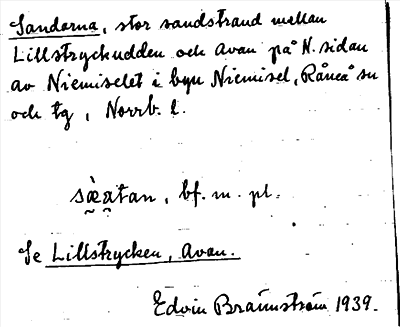 Sandarna, stor sandstrand mellan
Lillstryckudden och Avan på N. sidan
av Niemiselet i byn Niemisel, Råneå sn
och tg, Norrb. l.
bf. m. pl.
Se Lillstrycken, Avan.
Edvin Brännström 1939.